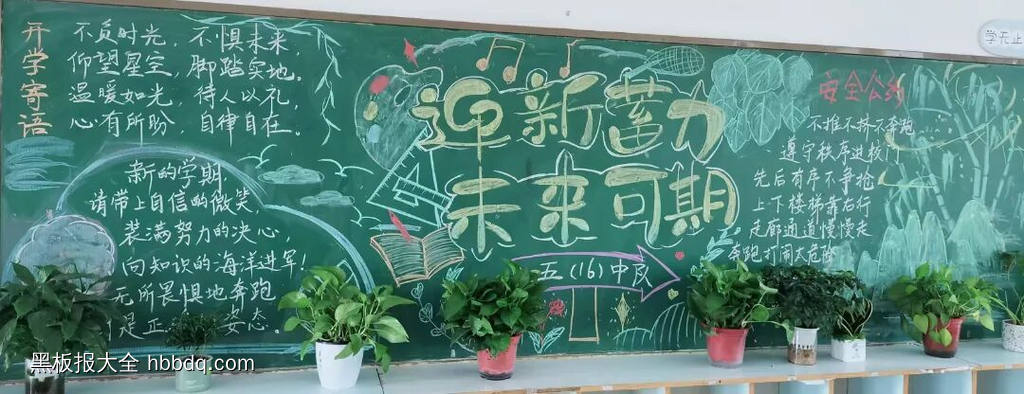 开学寄语
不负时光，不惧未来
仰望星空，脚踏实地。
温暖如光，待人以礼，
心有所盼，自律自在。
新的学期
请带上自信的微笑，
装满努力的决心，
向知识的海洋进军！
无所畏惧地奔跑
是正
姿态。
迎新蓄力
未来可期
五（16）中队
安全公约
不推不挤不奔跑
遵守秩序进校门
先后有序不争抢
上下楼梯靠右行
走廊通道慢慢走
奔跑打闹太危险
学无止
黑板报大全 hbbdq.com